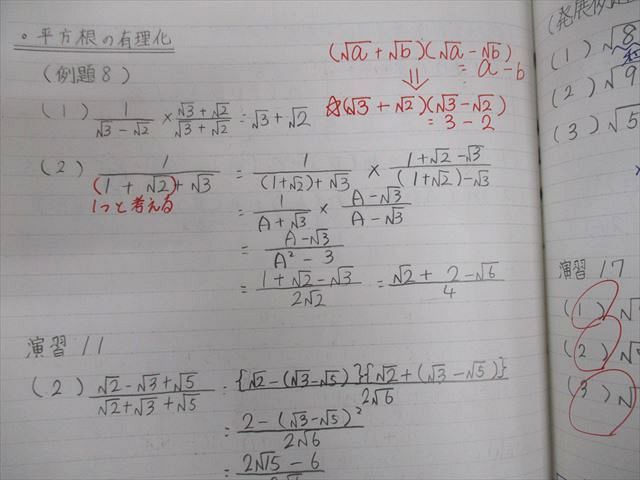 ・平方根の有理化
(例題8)
(√a + √b)(√a - √b)
= a - b
⇓
☆(√3 + √2)(√3 - √2)
= 3 - 2
(1) 1/(√3 - √2) × (√3 + √2)/(√3 + √2) = √3 + √2
(2) 1/((1 + √2) + √3) = 1/((1+√2) + √3) × (1+√2 - √3)/((1+√2) - √3)
1つと考える
= 1/(A + √3) × (A - √3)/(A - √3)
= (A - √3)/(A² - 3)
= (1 + √2 - √3)/(2√2) = (√2 + 2 - √6)/4
演習 11
(2) (√2 - √3 + √5)/(√2 + √3 + √5) = {√2 - (√3 - √5)}{√2 + (√3 - √5)}/(2√6)
= (2 - (√3 - √5)²)/(2√6)
= 2√15 - 6
(1) √8
(2) √9
(3) √5
演習 17
(1) √
(2) √
(3) √